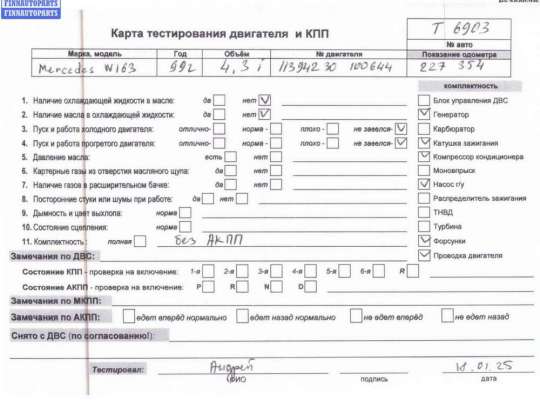 FINNAUTOPARTS
FINNAUTOPARTS
Карта тестирования двигателя и КПП
T 6903
№ авто
Марка, модель Год Объём № двигателя Показание одометра
Mercedes W163 99г. 4,3i 11394230 100644 227 354
комплектность
1. Наличие охлаждающей жидкости в масле: да нет
Блок управления ДВС
2. Наличие масла в охлаждающей жидкости: да нет
Генератор
3. Пуск и работа холодного двигателя: отлично- норма - плохо - не завелся-
Карбюратор
4. Пуск и работа прогретого двигателя: отлично- норма - плохо - не завелся-
Катушка зажигания
5. Давление масла: есть нет
Компрессор кондиционера
6. Картерные газы из отверстия масляного щупа: да нет
Моновпрыск
7. Наличие газов в расширительном бачке: да нет
Насос г/у
8. Посторонние стуки или шумы при работе: да нет
Распределитель зажигания
9. Дымность и цвет выхлопа: норма
ТНВД
10. Состояние сцепления: норма
Турбина
11. Комплектность: полная без АКПП
Форсунки
Замечания по ДВС:
Проводка двигателя
Состояние КПП - проверка на включение: 1-я 2-я 3-я 4-я 5-я 6-я R
Состояние АКПП - проверка на включение: P R N D
Замечания по МКПП:
Замечания по АКПП: едет вперёд нормально едет назад нормально не едет вперёд не едет назад
Снято с ДВС (по согласованию!):
Тестировал: Андрей 18.01.25
ФИО подпись дата